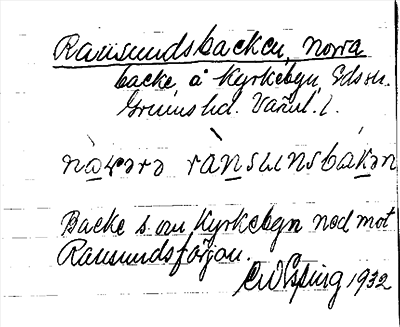 Ransundsbacken, norra
backe, å Kyrkebyn, Eds sn.
Grums hd. Värml. l.
nɷ̀rərə rànsunsbákən
Backe s. om Kyrkebyn ned mot
Ransundsfärjan.
1932